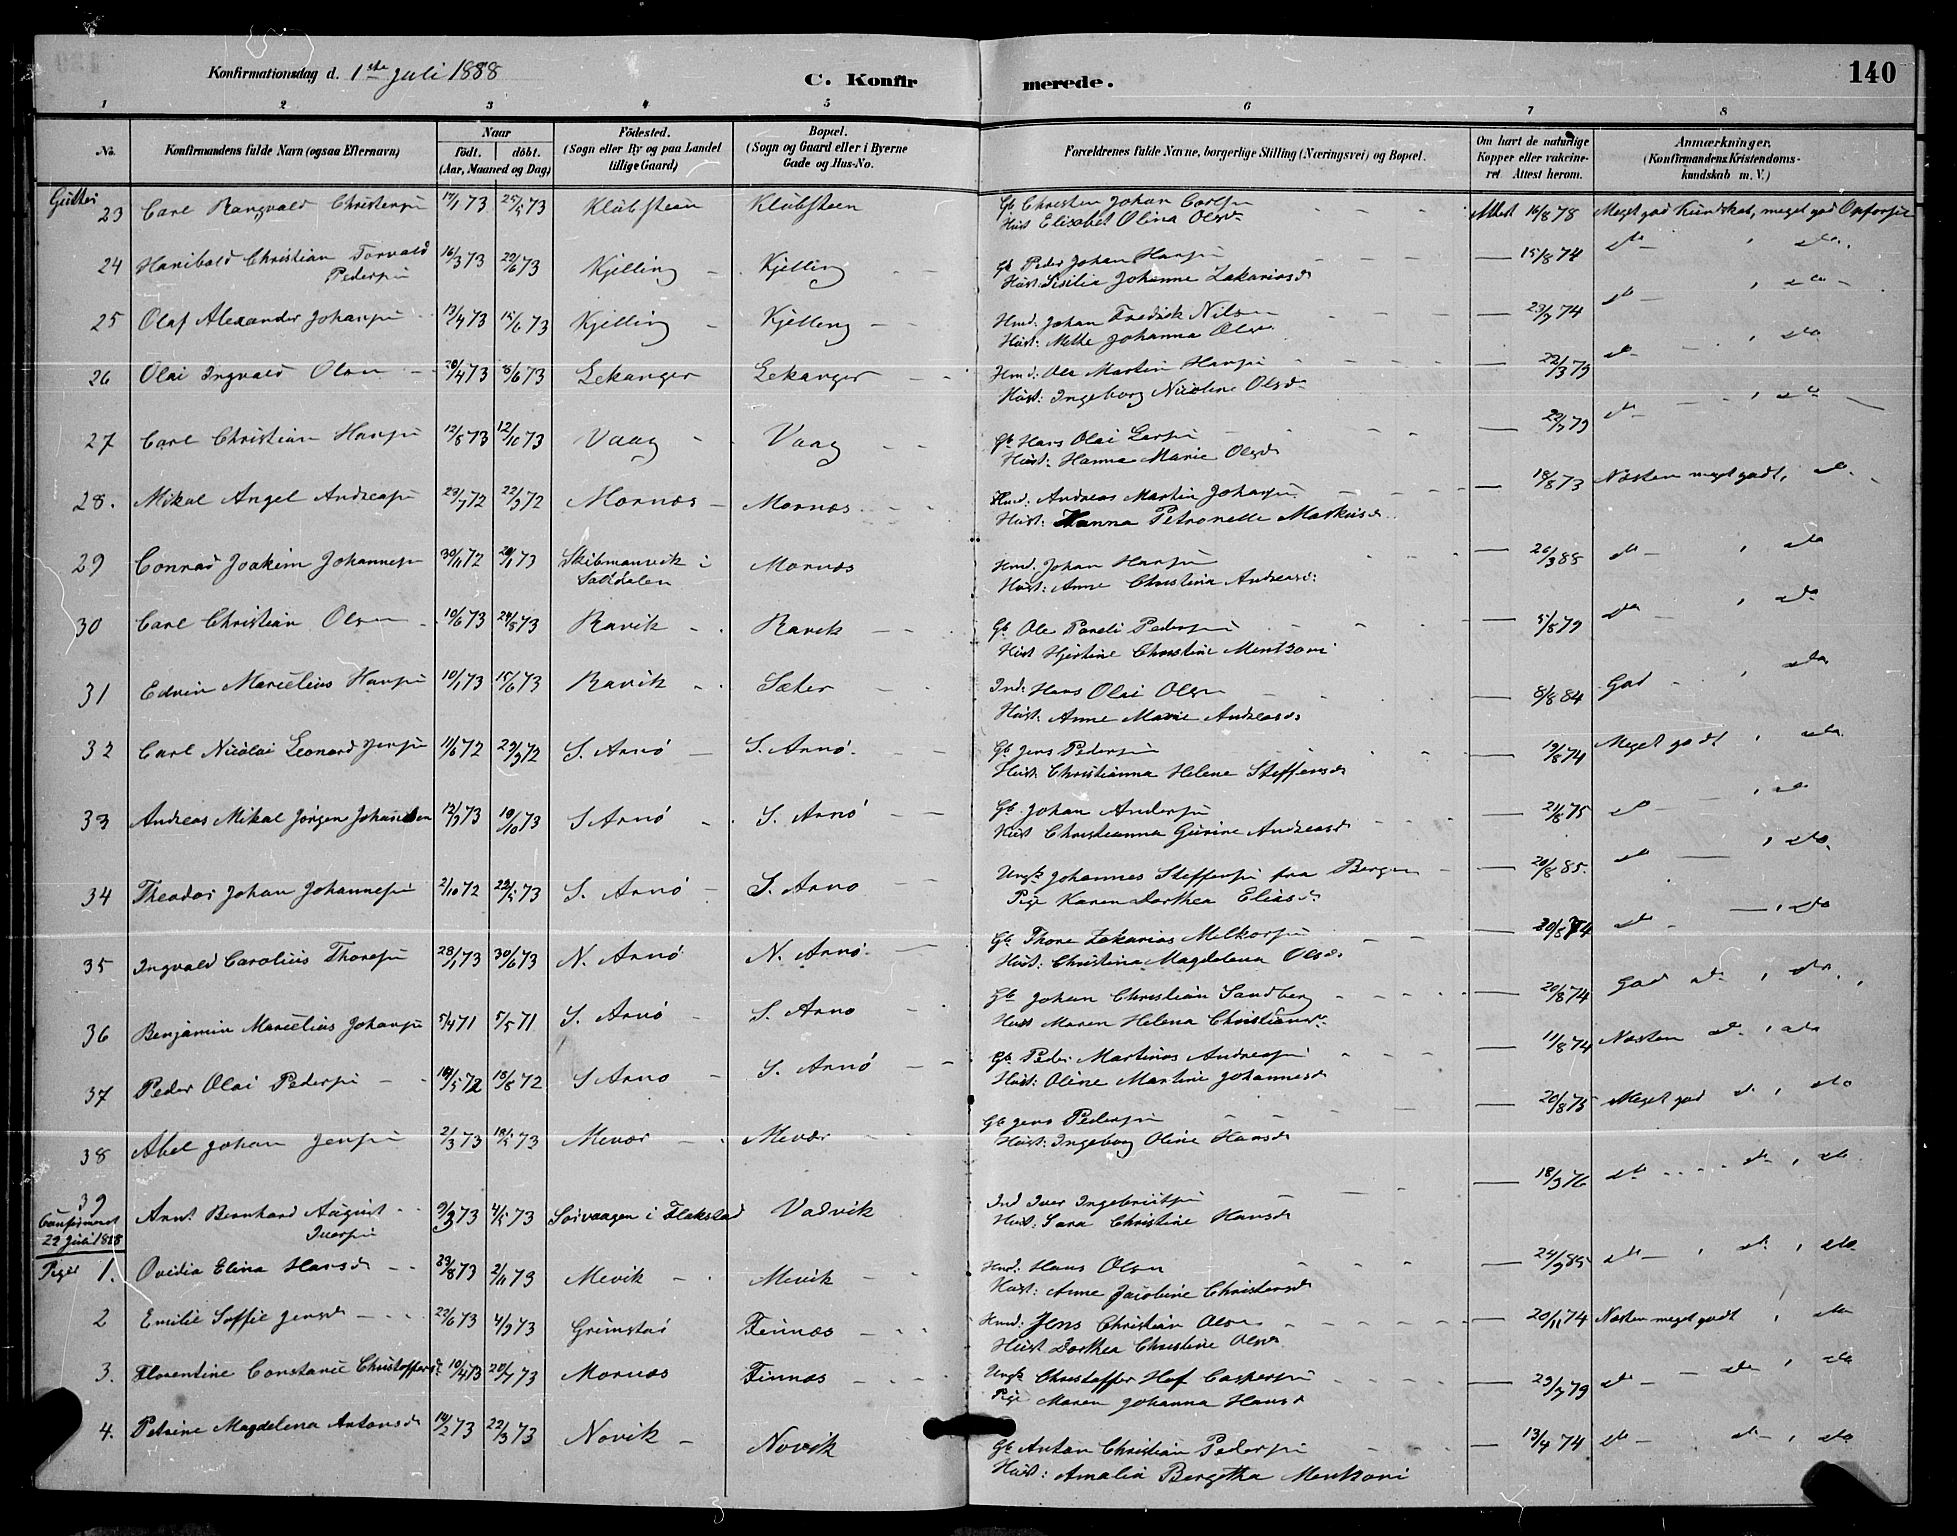 Konfirmationsdag d. 1ste Juli 1888 C. Konfir merede. 140
1 2 3 4 5 6 7 8
No. Konfirmandens fulde Navn (ogsaa Efternavn) Naar födt. döbt. (Aar, Maaned og Dag) Födested. (Sogn eller By og paa Landet tillige Gaard) Bopæl. (Sogn og Gaard eller i Byerne Gade og Hus-No. Forældrenes fulde Navne, borgerlige Stilling (Næringsvei) og Bopæl. Om havt de naturlige Kopper eller vakcineret. Attest herom. Anmærkninger. (Konfirmandens Kristendomskundskab m. V.)
Gutter
23 Carl Rangvald Christensen 17/1 73 25/5 73 Klubsteen Klubsteen Gb Christen Johan Carlsen Attest 16/8 78 Meget god Kundskab, meget god Opførsel
Hust Elisabet Olina Olsdr
24 Hanibald Christian Torvald Pedersen 16/3 73 22/6 73 Kjelling Kjelling Gb Peder Johan Hansen 15/8 74 do do
Hust: Sisilia Johanna Zakariasdr
25 Olaf Alexander Johansen 13/4 73 15/6 73 Kjelling Kjelling Hmd. Johan Fredrik Nilsen 23/7 74 do do
Hust: Methe Johanna Olsdr
26 Olai Ingvald Olsen 20/4 73 8/6 73 Lekanger Lekanger Hmd. Ole Martin Hansen 22/3 79 do do
Hust: Ingeborg Nicoline Olsdr
27 Carl Christian Hansen 12/8 73 12/10 73 Vaag Vaag Gb Hans Olai Larsen 22/7 79 do do
Hust: Hanna Marie Olsdr
28. Mikal Angel Andreasen 23/7 72 22/9 72 Mornæs Mornæs Hmd. Andreas Martin Johansen 18/8 73 Næsten meget godt, do
Hust: Hanna Petronelle Markusdr
29 Conrad Joakim Johannesen 30/11 72 20/1 73 Skibmannvik i Saltdalen Mornæs Hmd. Johan Hansen 26/3 88 do do
Hust: Anne Christina Andreasdr
30 Carl Christian Olsen 10/6 73 24/8 73 Ravik Ravik Gb Ole Pareli Pedersen 5/8 79 do do
Hust Hjertine Christine Mentzoni
31 Edvin Marcelius Hansen 10/1 73 15/6 73 Ravik Sæter Ind: Hans Olai Olsen 8/8 84 God do
Hust: Anne Marie Andreasdr
32 Carl Nicolai Leonard Jensen 11/6 72 29/9 72 S. Arnø S. Arnø Gb Jens Pedersen 19/8 74 Meget godt, do
Hust Christianna Helene Steffensdr
33 Andreas Mikal Jørgen Johansen 12/7 73 19/10 73 S Arnø S. Arnø Gb. Johan Andersen 21/8 75 do do
Hust Christianna Gurine Andreasdr
34 Theodor Johan Johannesen 2/10 72 22/5 73 S. Arnø S. Arnø Ungk Johannes Steffensen fra Bergen 20/8 85. do do
Pige Karen Dorthea Eliasdr
35 Ingvald Carolius Thoresen 28/1 73 30/6 73 N. Arnø N. Arnø Gb Thore Zakarias Melkorsen 20/8 74 do do
Hust: Christina Magdalena Olsdr
36 Benjamin Marcelius Johansen 5/4 71 7/5 71 S. Arnø S. Arnø Gb Johan Christian Sandberg 20/8 74 God do, do
Hust Maren Helena Christiansdr
37 Peder Olai Pedersen 18/5 72 18/8 72 S Arnø S. Arnø Gb Peder Martinus Andreasen 11/8 74 Næsten do, do
Hust: Oline Martine Johannesdr
38 Abel Johan Jensen 2/3 73 18/5 73 Mevær Mevær Gb Jens Pedersen 20/8 75 Meget god do, do
Hust: Ingeborg Oline Hansdr
39 Arnt Bernhard August Iversen 9/3 73 4/5 73 Sørvaagen i Flakstad Vadvik Ind Iver Ingebrigtsen 18/9 76 do do, do
Confirmeret 22 Juli 1888 Hust: Sara Christine Hansdr
Piger 1. Ovidia Elina Hansdr 29/8 73 2/11 73 Mevik Mevik Hmd. Hans Olsen 24/9 85 do do, do
Hust: Anne Jacobine Christensdr
2 Emilie Soffie Jensdr 22/6 73 4/9 73 Grimstad Finnæs Hmd. Jens Christian Olsen 20/11 74 Næsten meget godt, do
Hust Dorthea Christine Olsdr
3. Florentine Constance Christoffersdr 10/4 73 20/7 73 Mornæs Finnæs Ungk Christoffer Hof Caspersen 23/7 79 do do, do
Pige Maren Johanna Hansdr
4. Petrine Magdalena Antonsdr 14/2 73 22/3 73 Novik Novik Gb Anton Christian Pedersen 13/4 74 do do, do
Hust: Amalia Bergitha Mentzoni